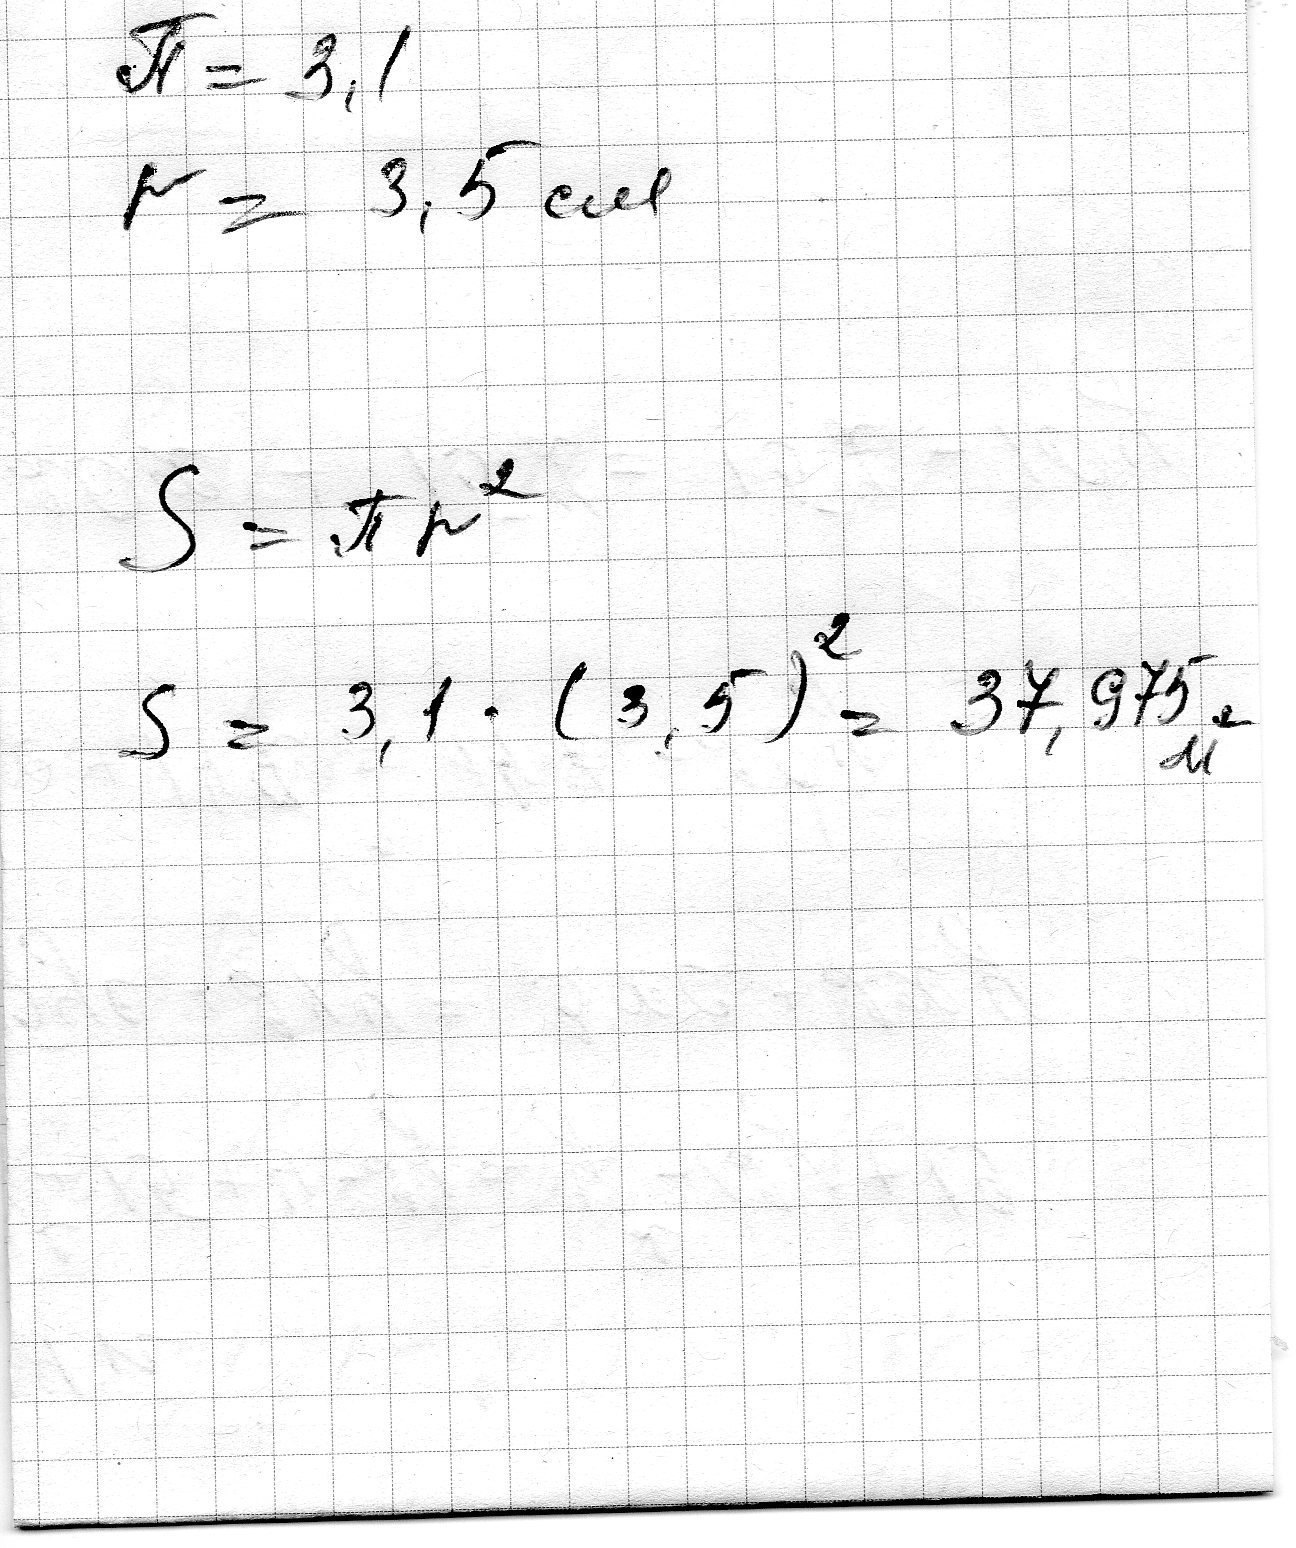 π = 3,1
r = 3,5 см
S = π r²
S = 3,1 · (3,5)² = 37,975 м²